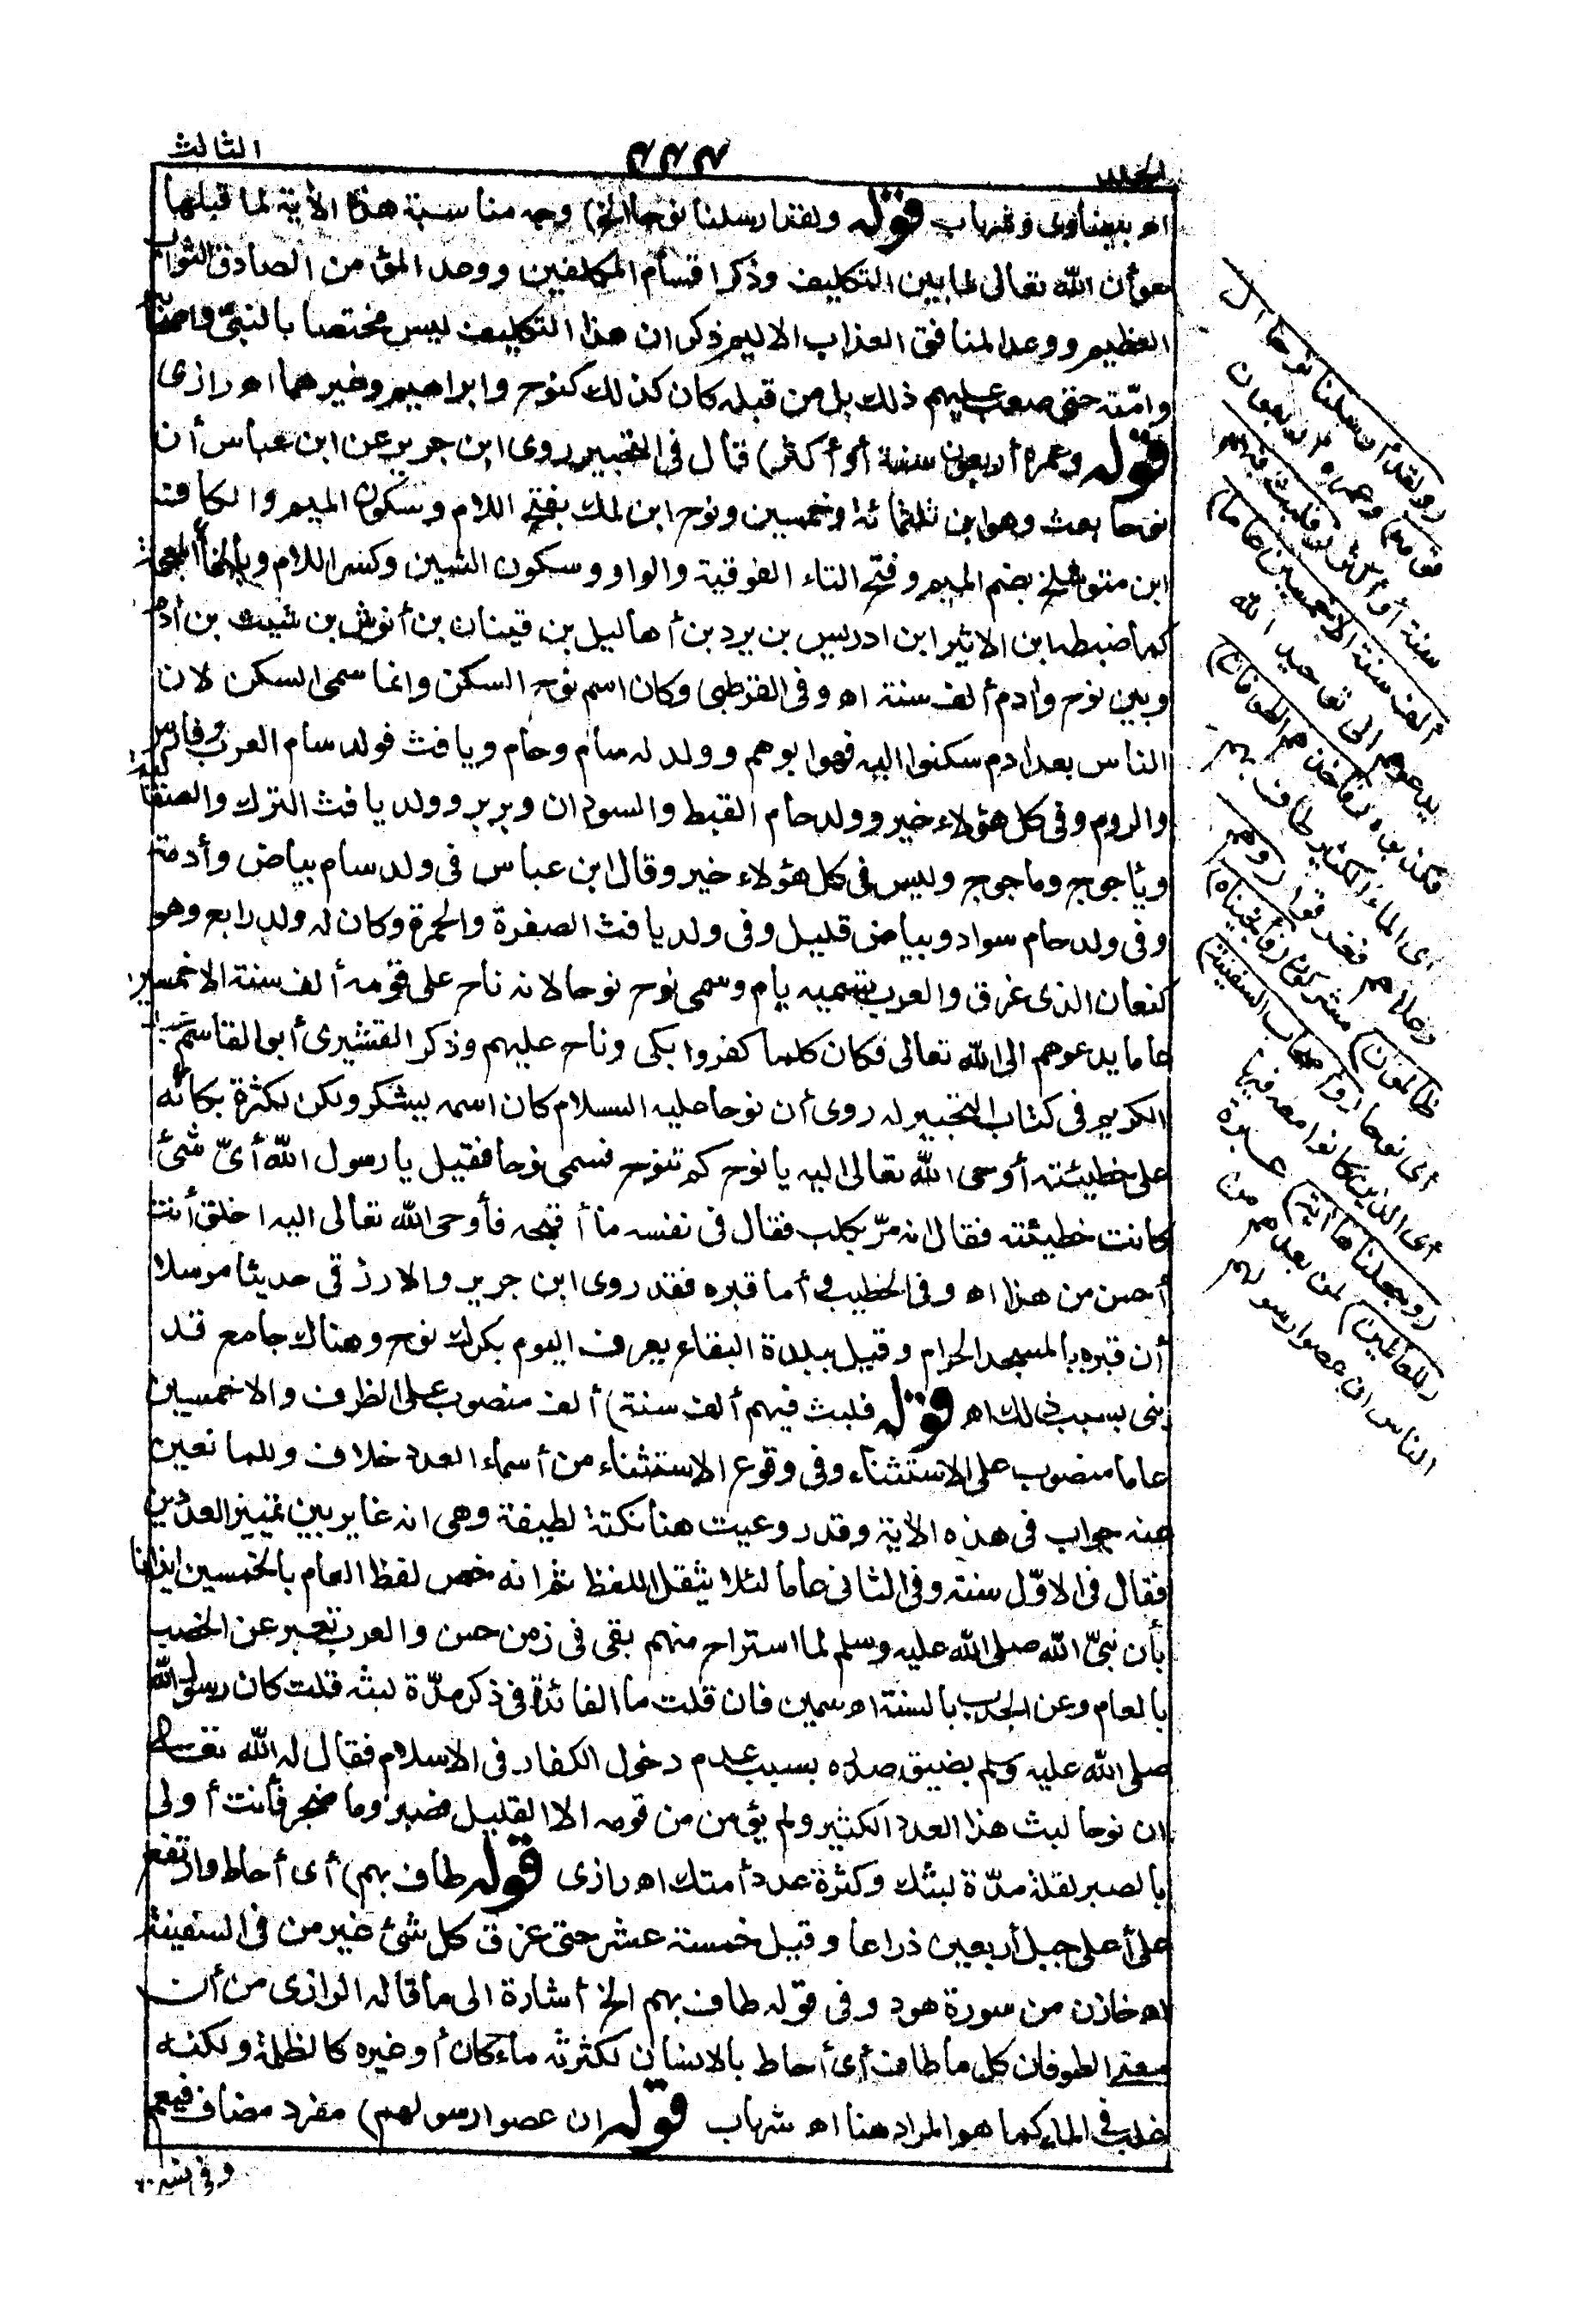 الجلد
٣٣٣
الثالث
اه بيضاوى وشهاب قوله ولقد ارسلنا نوحا الخ) وجه مناسبة هذه الأية لما قبلها
هو أن الله تعالى لما بين التكليف وذكر اقسام المكلفين ووعد المؤمن الصادق الثواب
العظيم ووعد المنافق العذاب الاليم ذكر ان هذا التكليف ليس مختصا بالنبىّ وأصحابه
وامّته حتى صعب عليهم ذلك بل من قبله كان كذلك كنوح وابراهيم وغيرهما اه رازى
قوله وعمره أربعون سنة أو أكثر) قال فى التحبير روى ابن جرير عن ابن عباس أن
نوحا بعث وهو ابن ثلثمائة وخمسين ونوح ابن لمك بفتح اللام وسكون الميم والكاف
ابن متوشلخ بضم الميم وفتح التاء الفوقية والواو وسكون الشين وكسر اللام وبالخاء المعجمة
كما ضبطه ابن الاثير ابن ادريس بن يرد بن أهاليل بن قينان بن أنوش بن شيث بن أدم
وبين نوح وأدم ألف سنة اه وفى القرطبى وكان اسم نوح السكن وانما سمى السكن لان
الناس بعد ادم سكنوا اليه فهو ابوهم وولد له سام وحام ويافث فولد سام العرب وفارس
والروم وفى كل هؤلاء خير وولد حام القبط والسودان وبربر وولد يافث الترك والصقالبة
ويأجوج ومأجوج وليس فى كل هؤلاء خير وقال ابن عباس فى ولد سام بياض وأدمة
وفى ولد حام سواد وبياض قليل وفى ولد يافث الصفرة والحمرة وكان له ولد رابع وهو
كنعان الذى غرق والعرب تسميه يام وسمى نوح نوحا لانه ناح على قومه ألف سنة الا خمسين
عاما يدعوهم الى الله تعالى فكان كلما كفروا بكى وناح عليهم وذكر القشيرى أبو القاسم عبد
الكريم فى كتاب التخبير له روى أن نوحا عليه السلام كان اسمه يشكر ولكن لكثرة بكائه
على خطيئته أوحى الله تعالى اليه يا نوح كم تنوح فسمى نوحا فقيل يا رسول الله أىّ شئ
كانت خطيئته فقال انه مرّ بكلب فقال فى نفسه ما أقبحه فأوحى الله تعالى اليه اخلق أنت
أحسن من هذا اه وفى الخطيب وأما قبره فقد روى ابن جرير والازرقى حديثا مرسلا
أن قبره بالمسجد الحرام وقيل ببلدة البقاع يعرف اليوم بكرك نوح وهناك جامع قد
بنى بسبب ذلك اه قوله فلبث فيهم ألف سنة) ألف منصوب على الظرف والا خمسين
عاما منصوب على الاستثناء وفى وقوع الاستثناء من أسماء العدد خلاف وللمانعين
عنه جواب فى هذه الأية وقد روعيت هنا نكتة لطيفة وهى انه غاير بين تمييز العددين
فقال فى الاوّل سنة وفى الثانى عاما لئلا يثقل اللفظ ثم انه خص لفظ العام بالخمسين ايذانا
بأن نبىّ الله صلى الله عليه وسلم لما استراح منهم بقى فى زمن حسن والعرب تعبر عن الخصب
بالعام وعن الجدب بالسنة اه سمين فان قلت ما الفائدة فى ذكر مدّة لبثه قلت كان رسول الله
صلى الله عليه وسلم يضيق صدره بسبب عدم دخول الكفار فى الاسلام فقال له الله تعالى
ان نوحا لبث هذا العدد الكثير ولم يؤمن من قومه الا القليل فصبر وما ضجر فأنت أولى
بالصبر لقلة مدّة لبثك وكثرة عدد أمتك اه رازى قوله طاف بهم) أى أحاط وارتفع
على أعلى جبل أربعين ذراعا وقيل خمسة عشر حتى غرق كل شئ غير من فى السفينة
اه خازن من سورة هود وفى قوله طاف بهم الخ أشارة الى ما قاله الرازى من أن
معنى الطوفان كل ما طاف أى أحاط بالانسان لكثرته ماء كان أو غيره كالظلمة ولكنه
غلب فى الماء كما هو المراد هنا اه شهاب قوله ان عصوا رسولهم) مفرد مضاف فيعم
وفى نسخة
(ولقد أرسلنا نوحا الى
قومه) وعمره أربعون
سنة أو أكثر (فلبث فيهم
ألف سنة الا خمسين عاما)
يدعوهم الى توحيد الله
فكذبوه (فأخذهم الطوفان)
أى الماء الكثير طاف بهم
وعلاهم فغرقوا (وهم
ظالمون) مشركون (فأنجيناه)
أى نوحا (وأصحاب السفينة)
أى الذين كانوا معه فيها
(وجعلناها أية) عبرة
(للعالمين) لمن بعدهم من
الناس ان عصوا رسولهم